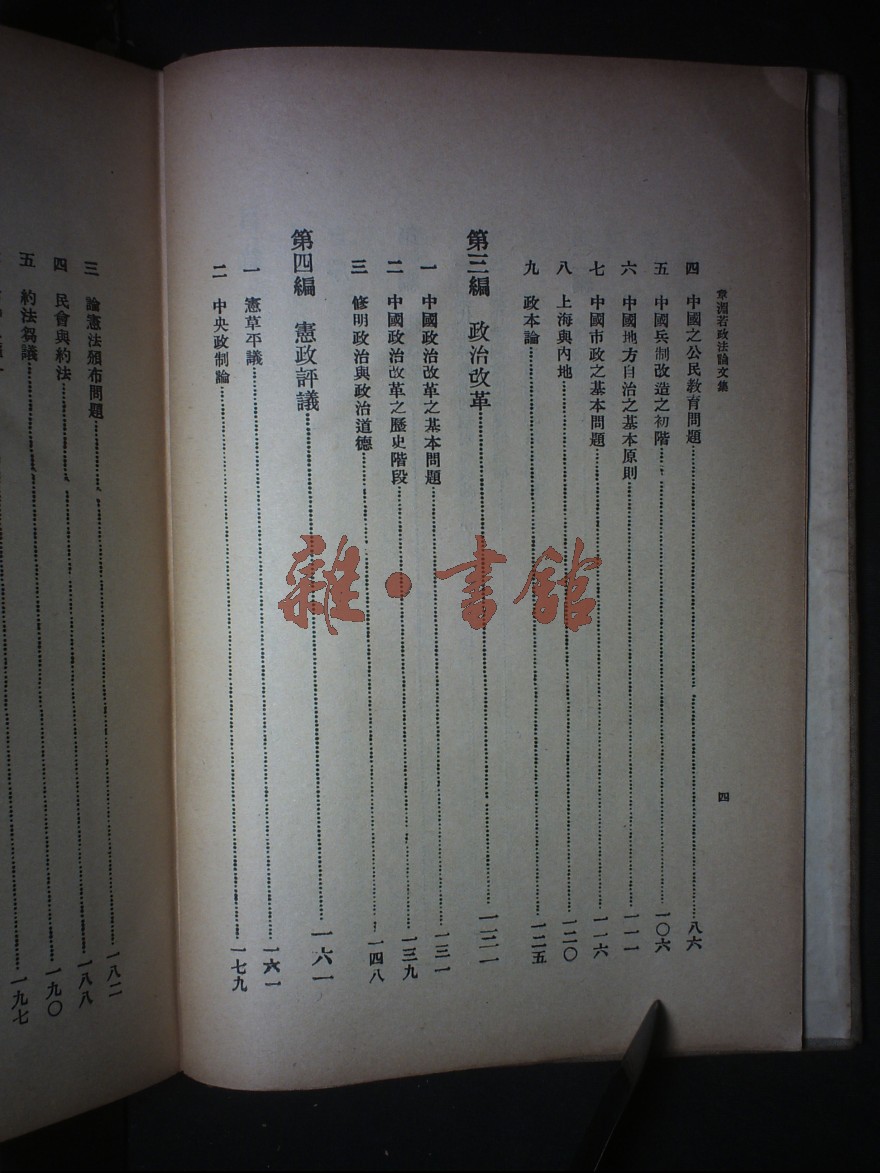 章淵若政法論文集
四
四 中國之公民教育問題 八六
五 中國兵制改造之初階 一〇六
六 中國地方自治之基本原則 一一一
七 中國市政之基本問題 一一六
八 上海與內地 一二〇
九 政本論 一二五
第三編 政治改革 一三一
一 中國政治改革之基本問題 一三一
二 中國政治改革之歷史階段 一三九
三 修明政治與政治道德 一四八
第四編 憲政評議 一六一
一 憲草平議 一六一
二 中央政制論 一七九
三 論憲法頒布問題 一八二
四 民會與約法 一八八
五 約法芻議 一九〇
一九七
雜·書館